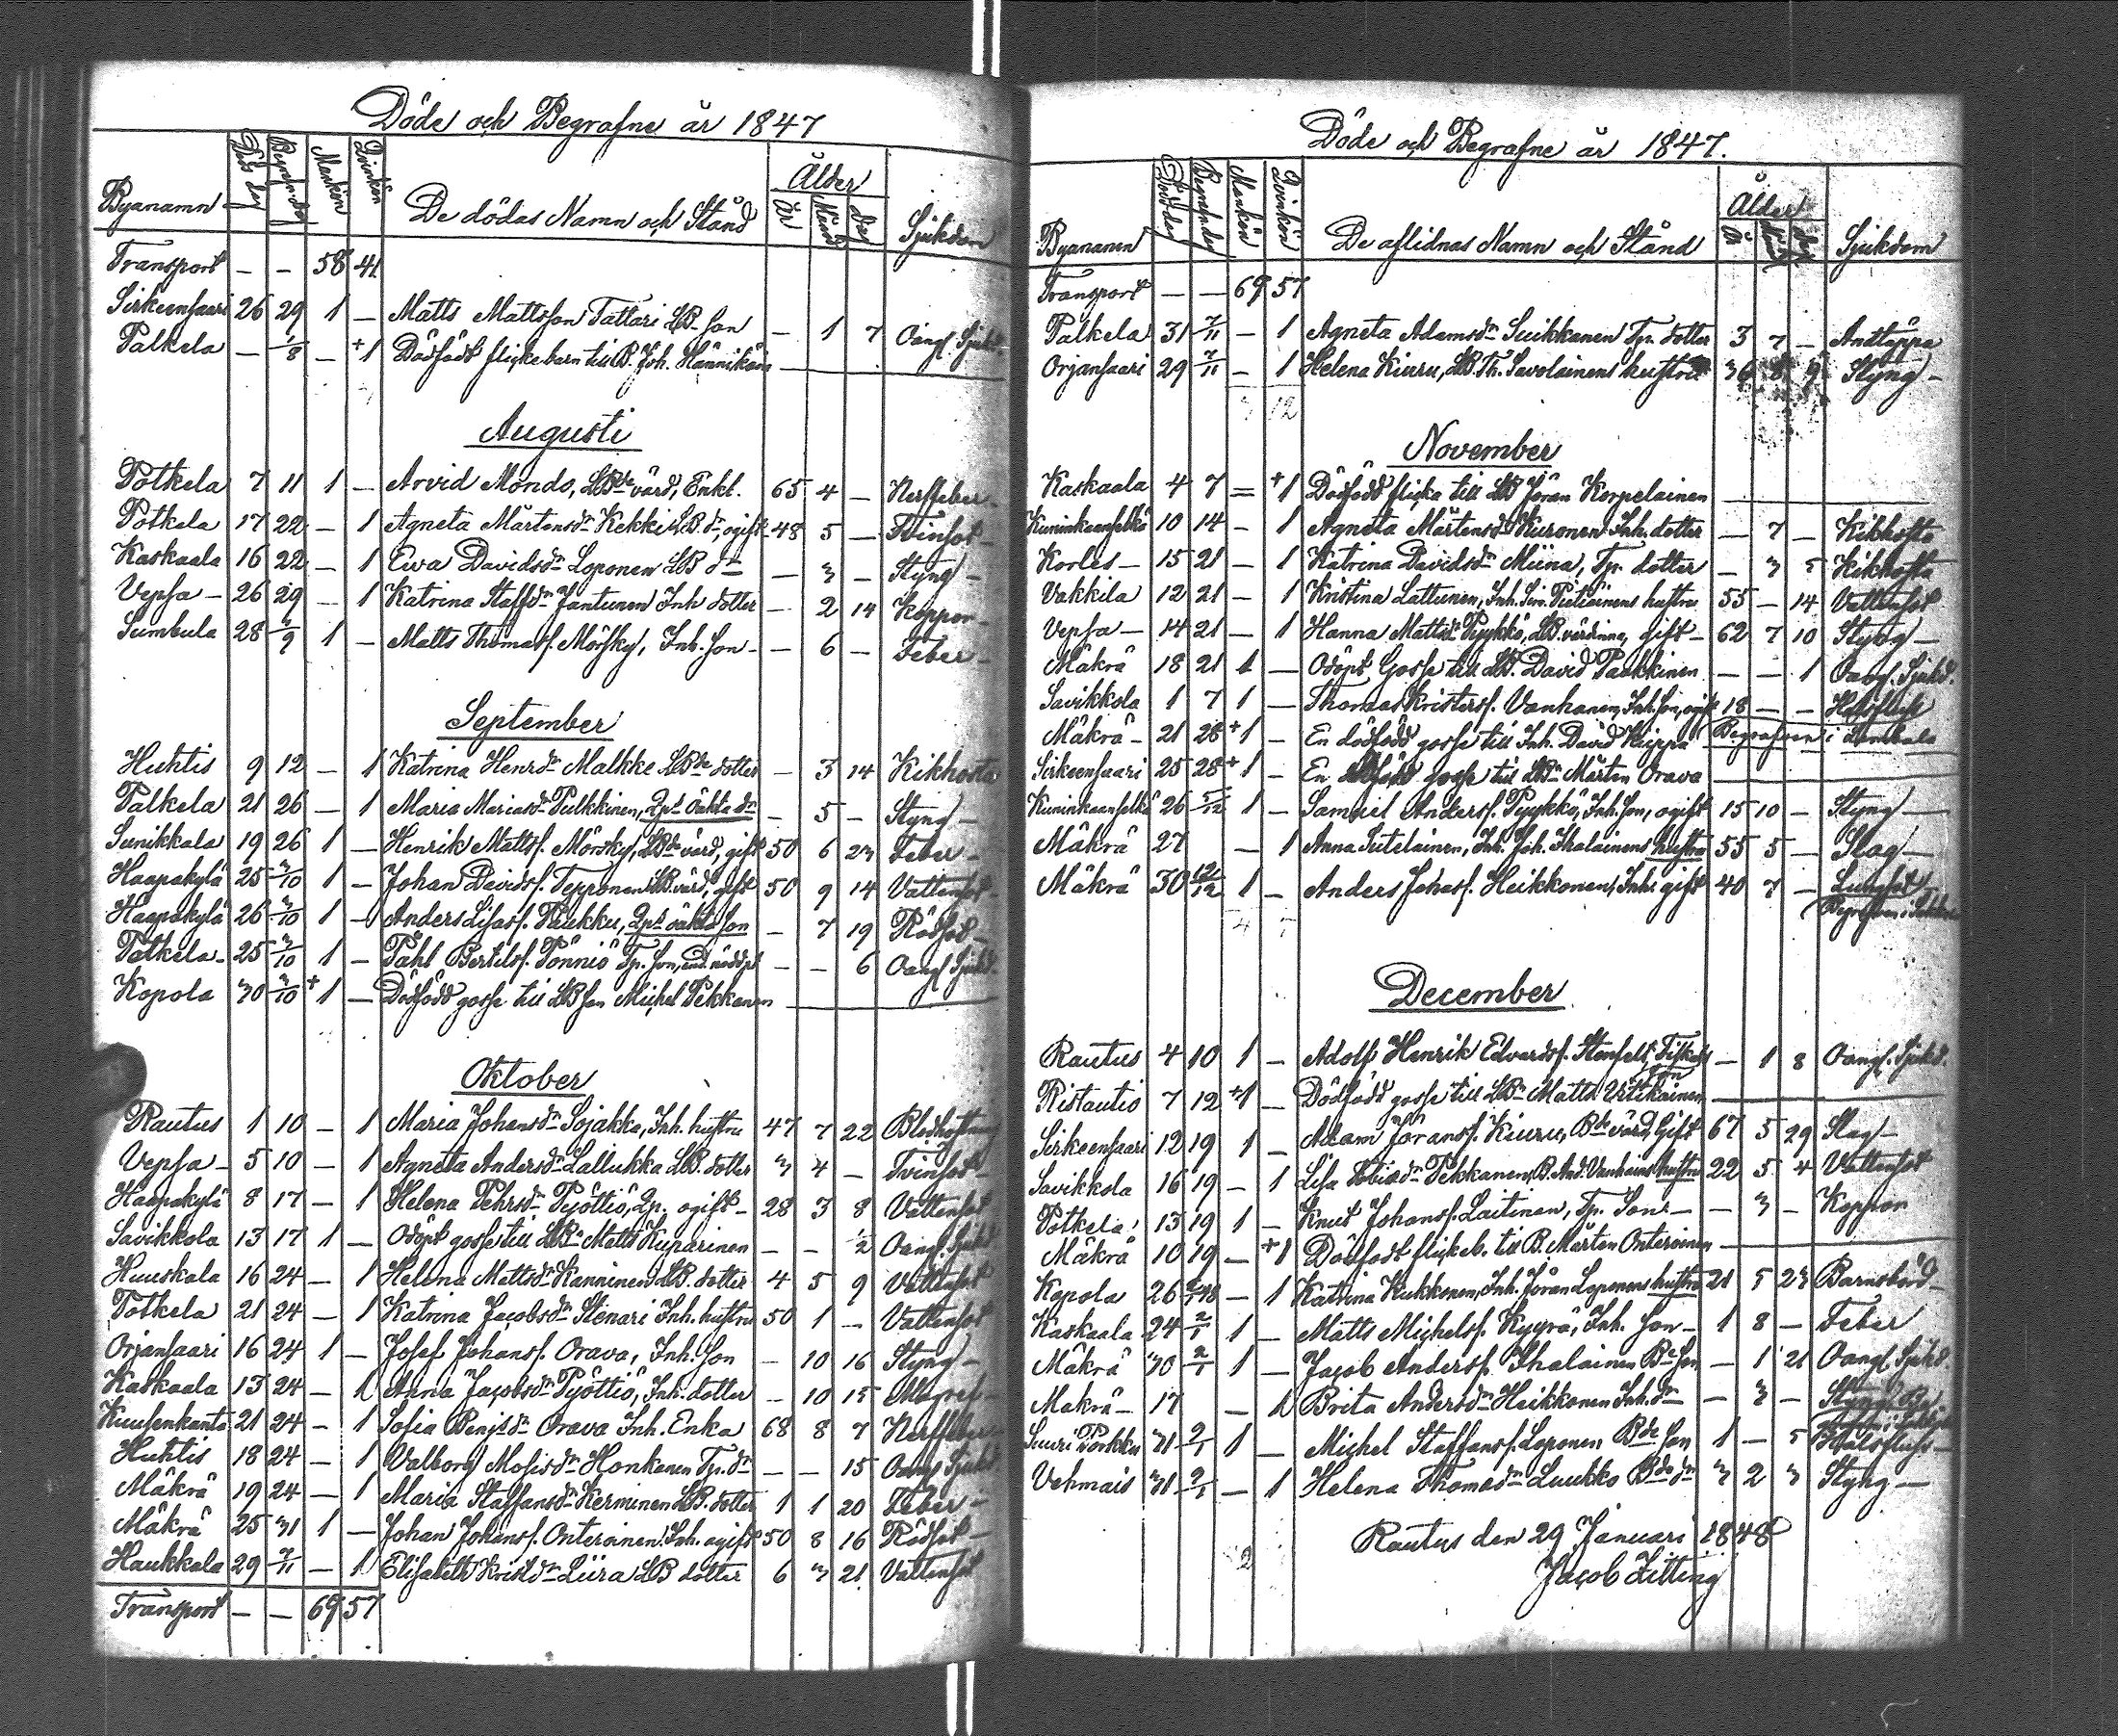 Döde och Begrafne år 1847
Byanamn Döds dag Begrafn. dag Mankön Qvinkön De dödas Namn och Stånd Ålder År Månad Dag Sjukdom
Transport — — 58 41
Sirkeensaari 26 29 1 — Matts Mattsson Tattari LB. son — 1 7 Oang. Sjukd.
Palkela — 1/8 — +1 Dödfödt flickebarn till B. Joh. Hännikäin —
Augusti
Potkela 7 11 1 — Arvid Mondo, LBde värd, Enkl. 65 4 — Nerffeber
Potkela 17 22 — 1 Agneta Mårtensdr Kekki LB. dr, ogift 48 5 — Tvinsot
Kaskaala 16 22 — 1 Ewa Davidsdr Loponen LB dr — 3 — Styng
Vepsa 26 29 — 1 Katrina Staffdr Jantunen Inh dotter — 2 14 Koppor
Sumbula 28 1/9 1 — Matts Thomass. Mörsky, Inh. son — 6 — Feber
September
Huhtis 9 12 — 1 Katrina Henrdr Malkke LBde dotter — 3 14 Kikhosta
Palkela 21 26 — 1 Maria Mariasdr Pulkkinen, Qps oäkta dr — 5 — Styng
Sunikkala 19 26 1 — Henrik Mattss. Mörsky, LBde värd, gift 50 6 23 Feber
Haapakylä 25 3/10 1 — Johan Davidss. Tepponen LB. värd, gift 50 9 14 Vattensot
Haapakylä 26 3/10 1 — Anders Lisass. Puukku, Qps oäkta son — 7 19 Rödsot
Palkela 25 3/10 1 — Påhl Bertilss. Pönniö Tp. son, nöddpt — — 6 Oang Sjukd.
Kopola 30 3/10 +1 — Dödfödd gosse till LB son Michel Pekkanen —
Oktober
Rautus 1 10 — 1 Maria Johansdr Sojakka, Inh. hustru 47 7 22 Blodhostning
Vepsa 5 10 — 1 Agneta Andersdr Lallukka LB. dotter 3 4 — Tvinsot
Haapakylä 8 17 — 1 Helena Pehrsdr Pyöttiö, Qp. ogift 28 3 8 Vattensot
Savikkola 13 17 1 — Odöpt gosse till LBn Matts Kuparinen — — 2 Oang. Sjukd
Huuskala 16 24 — 1 Helena Mattsdr Kanninen LB. dotter 4 5 9 Vattensot
Potkela 21 24 — 1 Katrina Jacobsdr Stenari Inh. hustru 50 1 — Vattensot
Orjansaari 16 24 1 — Josef Johanss. Orava, Inh. son — 10 16 Styng
Kaskaala 13 24 — 1 Anna Jacobsdr Pyöttiö, Inh. dotter — 10 15 Magref
Kuusenkanta 21 24 — 1 Sofia Bengtsdr Orava Inh. Enka 68 8 7 Nerffeber
Huhtis 18 24 — 1 Walborg Mosisdr Honkanen Tp. dr — — 15 Oang Sjukd
Mäkrä 19 24 — 1 Maria Staffansdr Kerminen LB. dotter 1 1 20 Feber
Mäkrä 25 31 1 — Johan Johanss. Onteroinen Inh. ogift 50 8 16 Rödsot
Haukkala 29 7/11 — 1 Elisabeth Kristdr Liira LB dotter 6 3 21 Vattensot
Transport — — 69 57
Döde och Begrafne år 1847.
Byanamn Döds dag Begrafn. dag Mankön Qvinkön De aflidnas Namn och Stånd Ålder År Månad Dag Sjukdom
Transport — — 69 57
Palkela 31 7/11 — 1 Agneta Adamsdr Suikkanen Tp. dotter 3 7 — Andtäppa
Orjansaari 29 7/11 — 1 Helena Kiuru, LB. Th. Savolainens hustru 36 8 9 Styng
November
Kaskaala 4 7 — +1 Dödfödd flicka till LB Jöran Korpelainen —
Kuninkaanselkä 10 14 — 1 Agneta Mårtensdr Kuronen Inh. dotter — 7 — Kikhosta
Korles 15 21 — 1 Katrina Davidsdr Miina, Tp. dotter — 3 5 Kikhosta
Vakkila 12 21 — 1 Kristina Lattunen, Inh. Sim. Pietiäinens hustru 55 — 14 Vattensot
Vepsa 14 21 — 1 Hanna Mattsdr Pyykkö, LB. värdinna, gift 62 7 10 Styng
Mäkrä 18 21 1 — Odöpt Gosse till LB. David Paukkinen — — 1 Oang. Sjukd.
Savikkola 1 7 1 — Thomas Kristerss. Vanhanen, Inh. son, ogift 18 — — Halsfluss
Mäkrä 21 28 +1 — En dödfödd gosse till Inh. David Huppa Begrafven i Lembala
Sirkeensaari 25 28 +1 — En dödfödd gosse till LBn Mårten Orava —
Kuninkaanselkä 26 5/12 1 — Samuel Anderss. Pyykkö, Inh. son, ogift 15 10 — Styng
Mäkrä 27 — 1 Anna Sutelainen, Inh. Joh. Ihalainens hustru 55 5 — Slag
Mäkrä 30 12/12 1 — Anders Johass. Heikkonen, Inh. gift 40 7 — Lungsot
Begrafven i
December
Rautus 4 10 1 — Adolf Henrik Edvardss. Stenfelt, Fiskals son — 1 8 Oang. Sjukd.
Ristautio 7 12 +1 — Dödfödd gosse till LBn Matts Urtikainen —
Sirkeensaari 12 19 1 — Adam Jöranss. Kiuru, Bde värd, Gift 67 5 29 Slag
Savikkola 16 19 — 1 Lisa Tobiasdr Pekkanen, B. And. Vanhanens hustru 22 5 4 Vattensot
Potkela 13 19 1 — Knut Johanss. Laitinen, Tp. Son — 3 — Koppor
Mäkrä 10 19 — +1 Dödfödt flickeb. till B. Mårten Onteroinen —
Kopola 26 2/1 48 — 1 Katrina Kukkonen, Inh. Jöran Loponens hustru 21 5 23 Barnsbörd
Kaskaala 24 2/1 1 — Matts Michelss. Kyyrä, Inh. son 1 8 — Feber
Mäkrä 30 2/1 1 — Jacob Anderss. Ihalainen Bde son — 1 21 Oang. Sjukd.
Makrä 17 — 1 Brita Andersdr Heikkonen Inh. dr — 3 — Styng
Suuri Porkku 31 2/1 1 — Michel Staffanss. Loponen Bde son 1 — 5 Halsfluss
Vehmais 31 2/1 — 1 Helena Thomasdr Luukko Bde dr 3 2 3 Styng
Rautus den 29 Januari 1848
Jacob Zitting